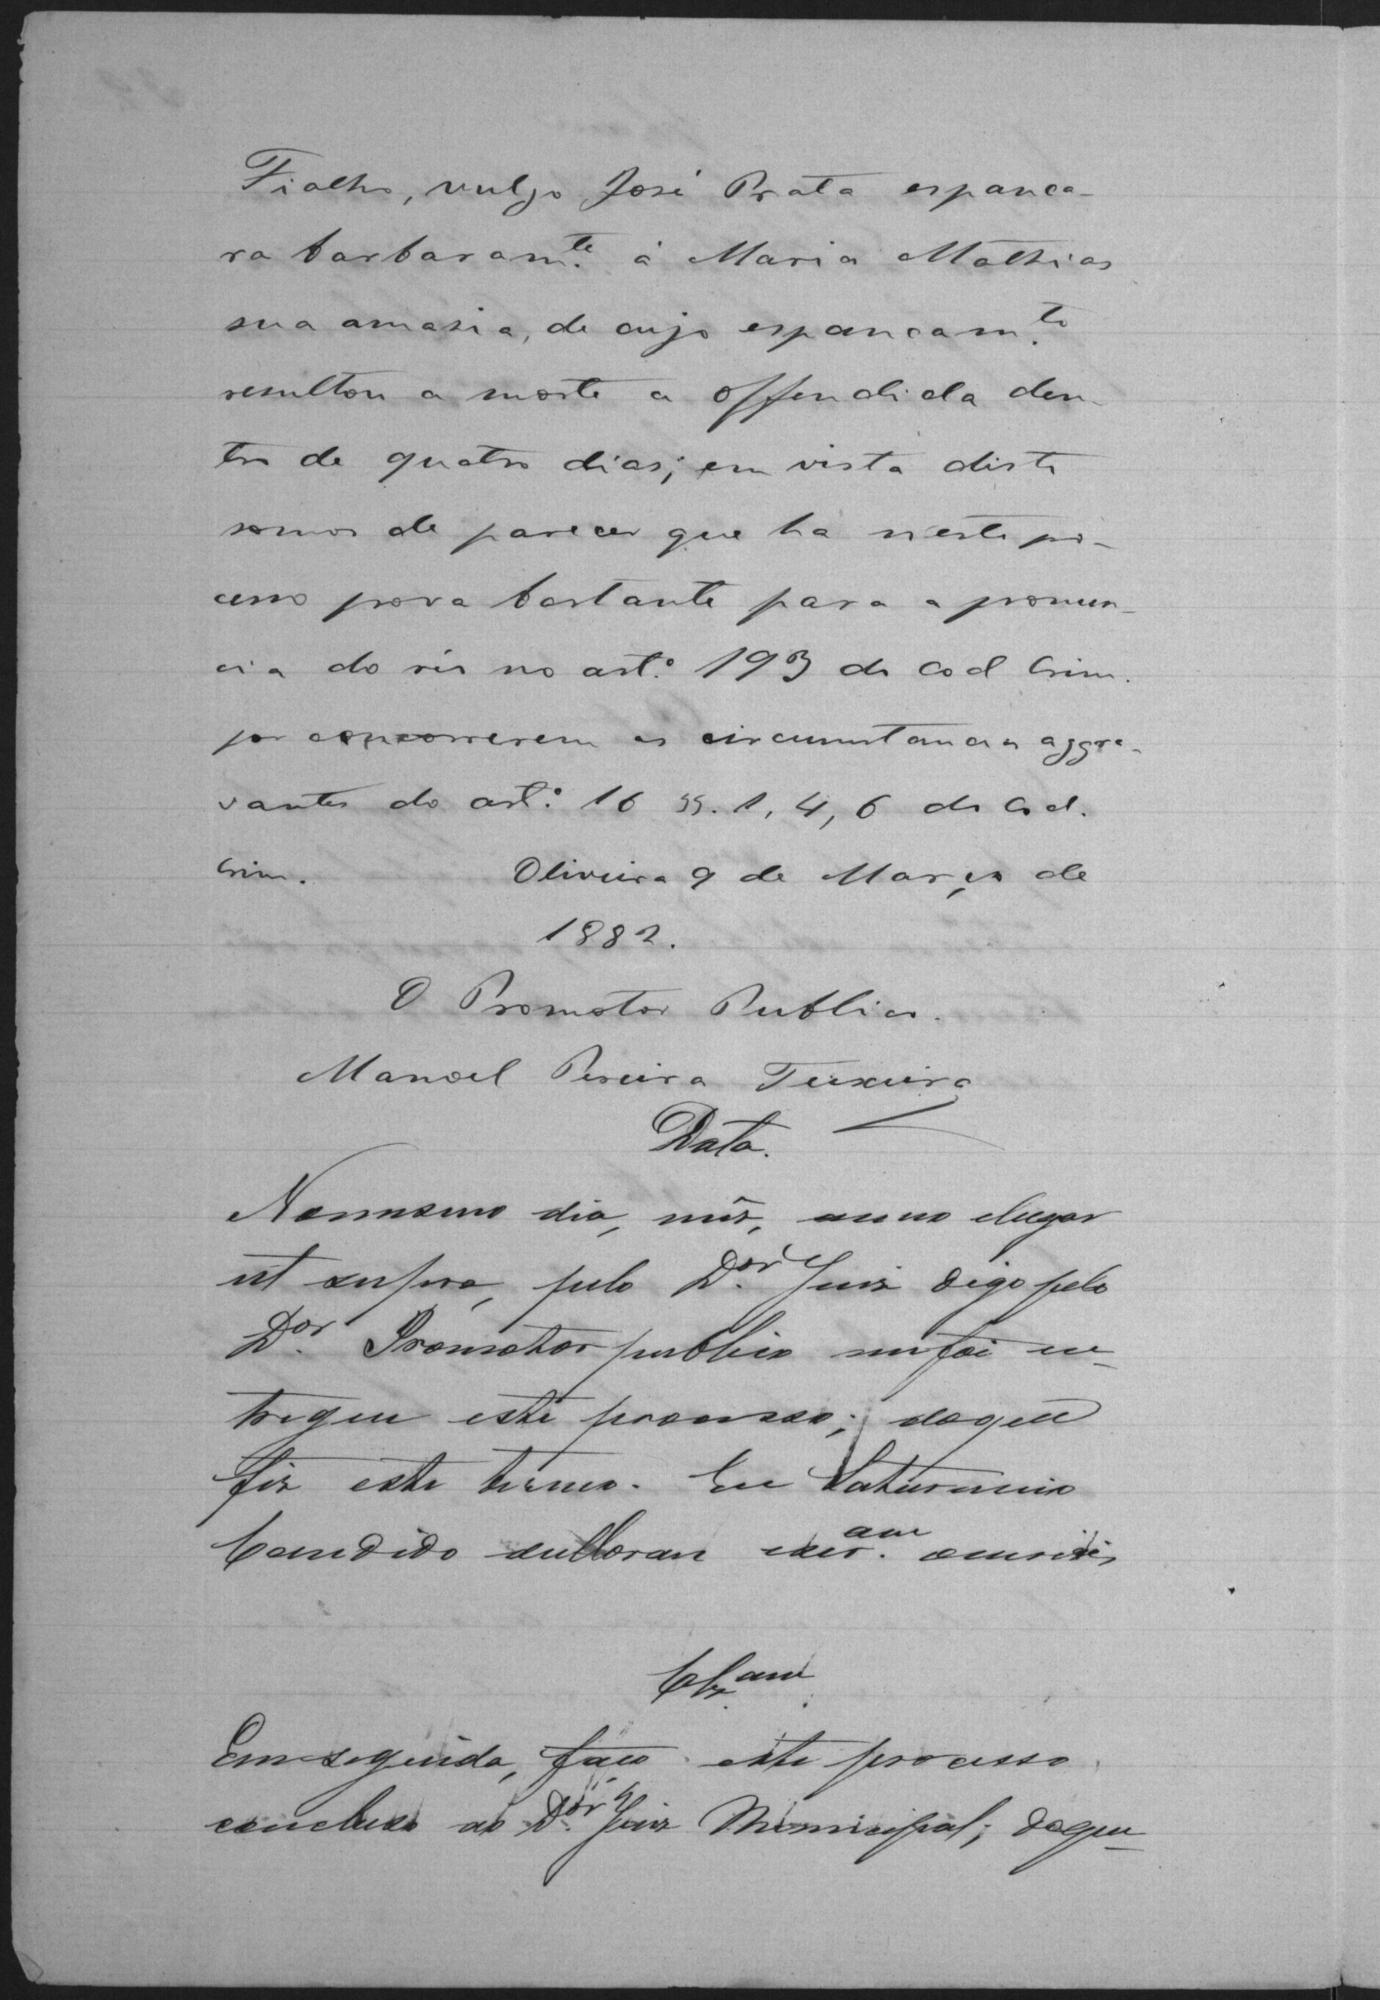 Fialho, vulgo José Prata espanca-
ra barbaram.te á Maria Mathias
sua amasia, de cujo espancam.to
resultou a morte a offendida den-
tro de quatro dias; em vista disto
somos de parecer que ha n'este pro-
cesso prova bastante para a pronun-
cia do réo no art.º 193 do Cod Crim.
por concorrerem as circumstancias aggra-
vantes do art.º 16 §§. 1, 4, 6 do Cod.
Crim. Oliveira 9 de Março de
1882.
O Promotor Publico.
Manoel Pereira Teixeira
Data.
No mesmo dia, mês, anno e lugar
ut supra, pelo D.or Juiz digo pelo
D.or Promotor publico me foi en-
tregue este processo; do que
fiz este termo. Eu Saturnino
Candido escr.am o escrevi
Clz.am
Em seguida, faço este processo
concluso ao D.or Juiz Municipal; do que